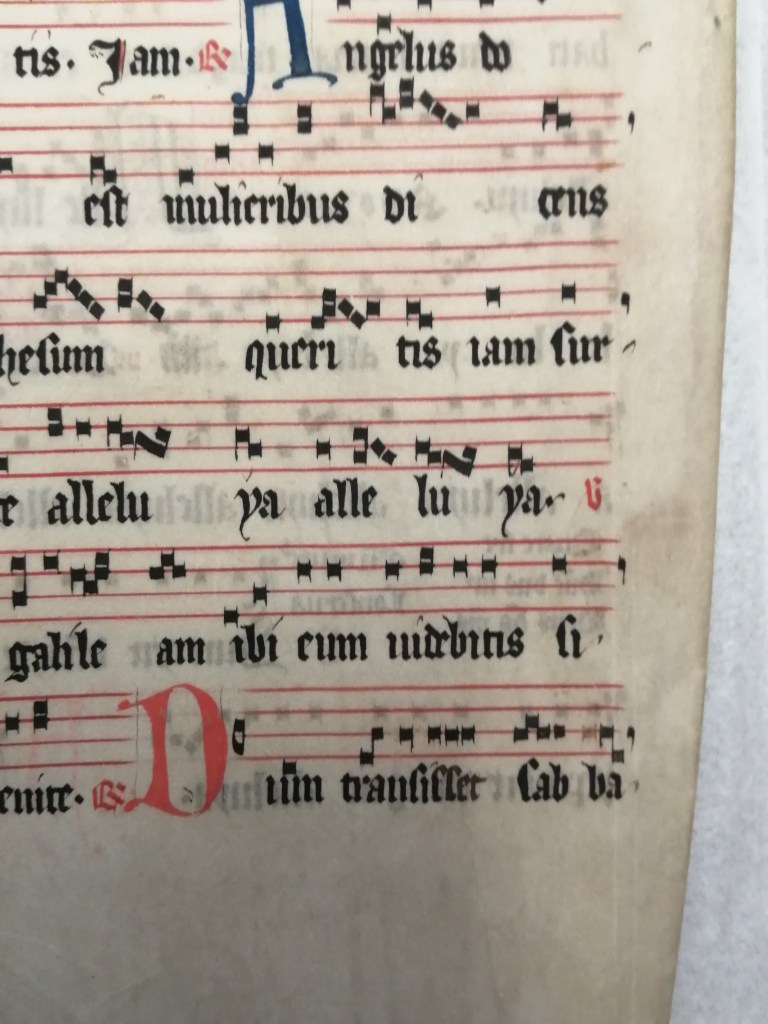 tis. Jam. ℟ Angelus do
est mulieribus di cens
hesum queri tis iam sur
te allelu ya alle lu ya. ℣
galile am ibi eum uidebitis si
enite. ℟ Dum transisset sab ba